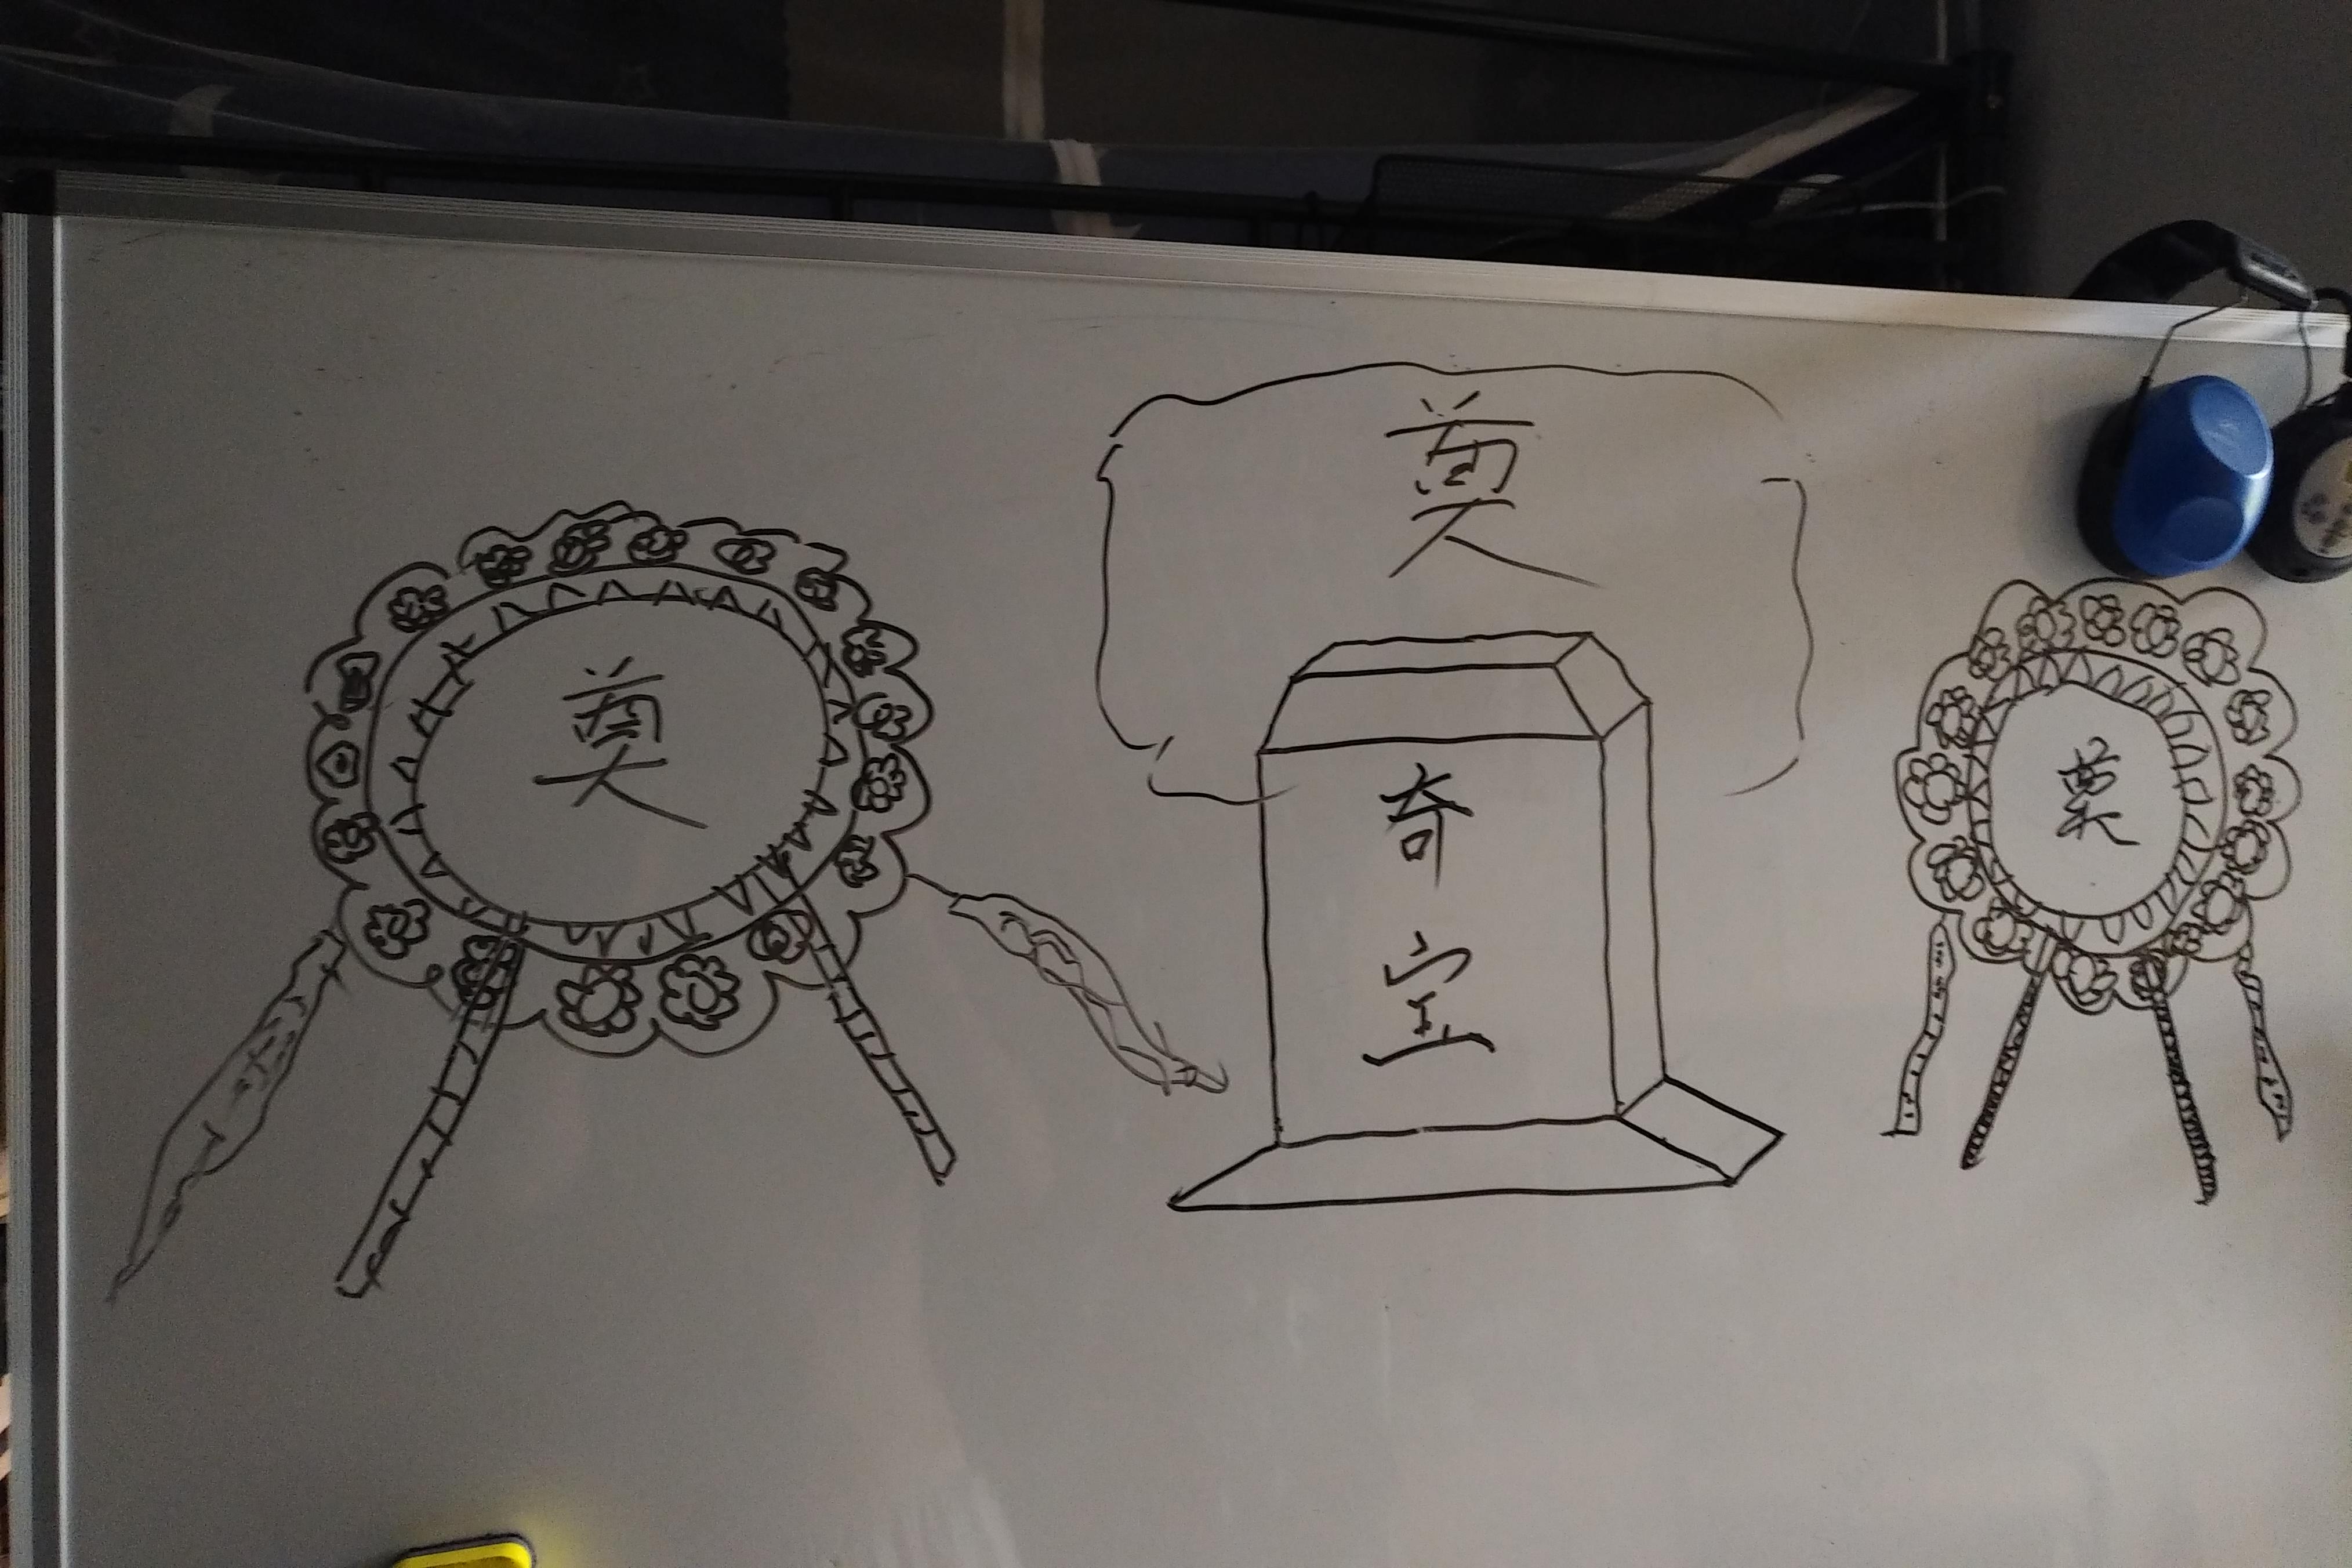 奠
奠
奇
空
奠